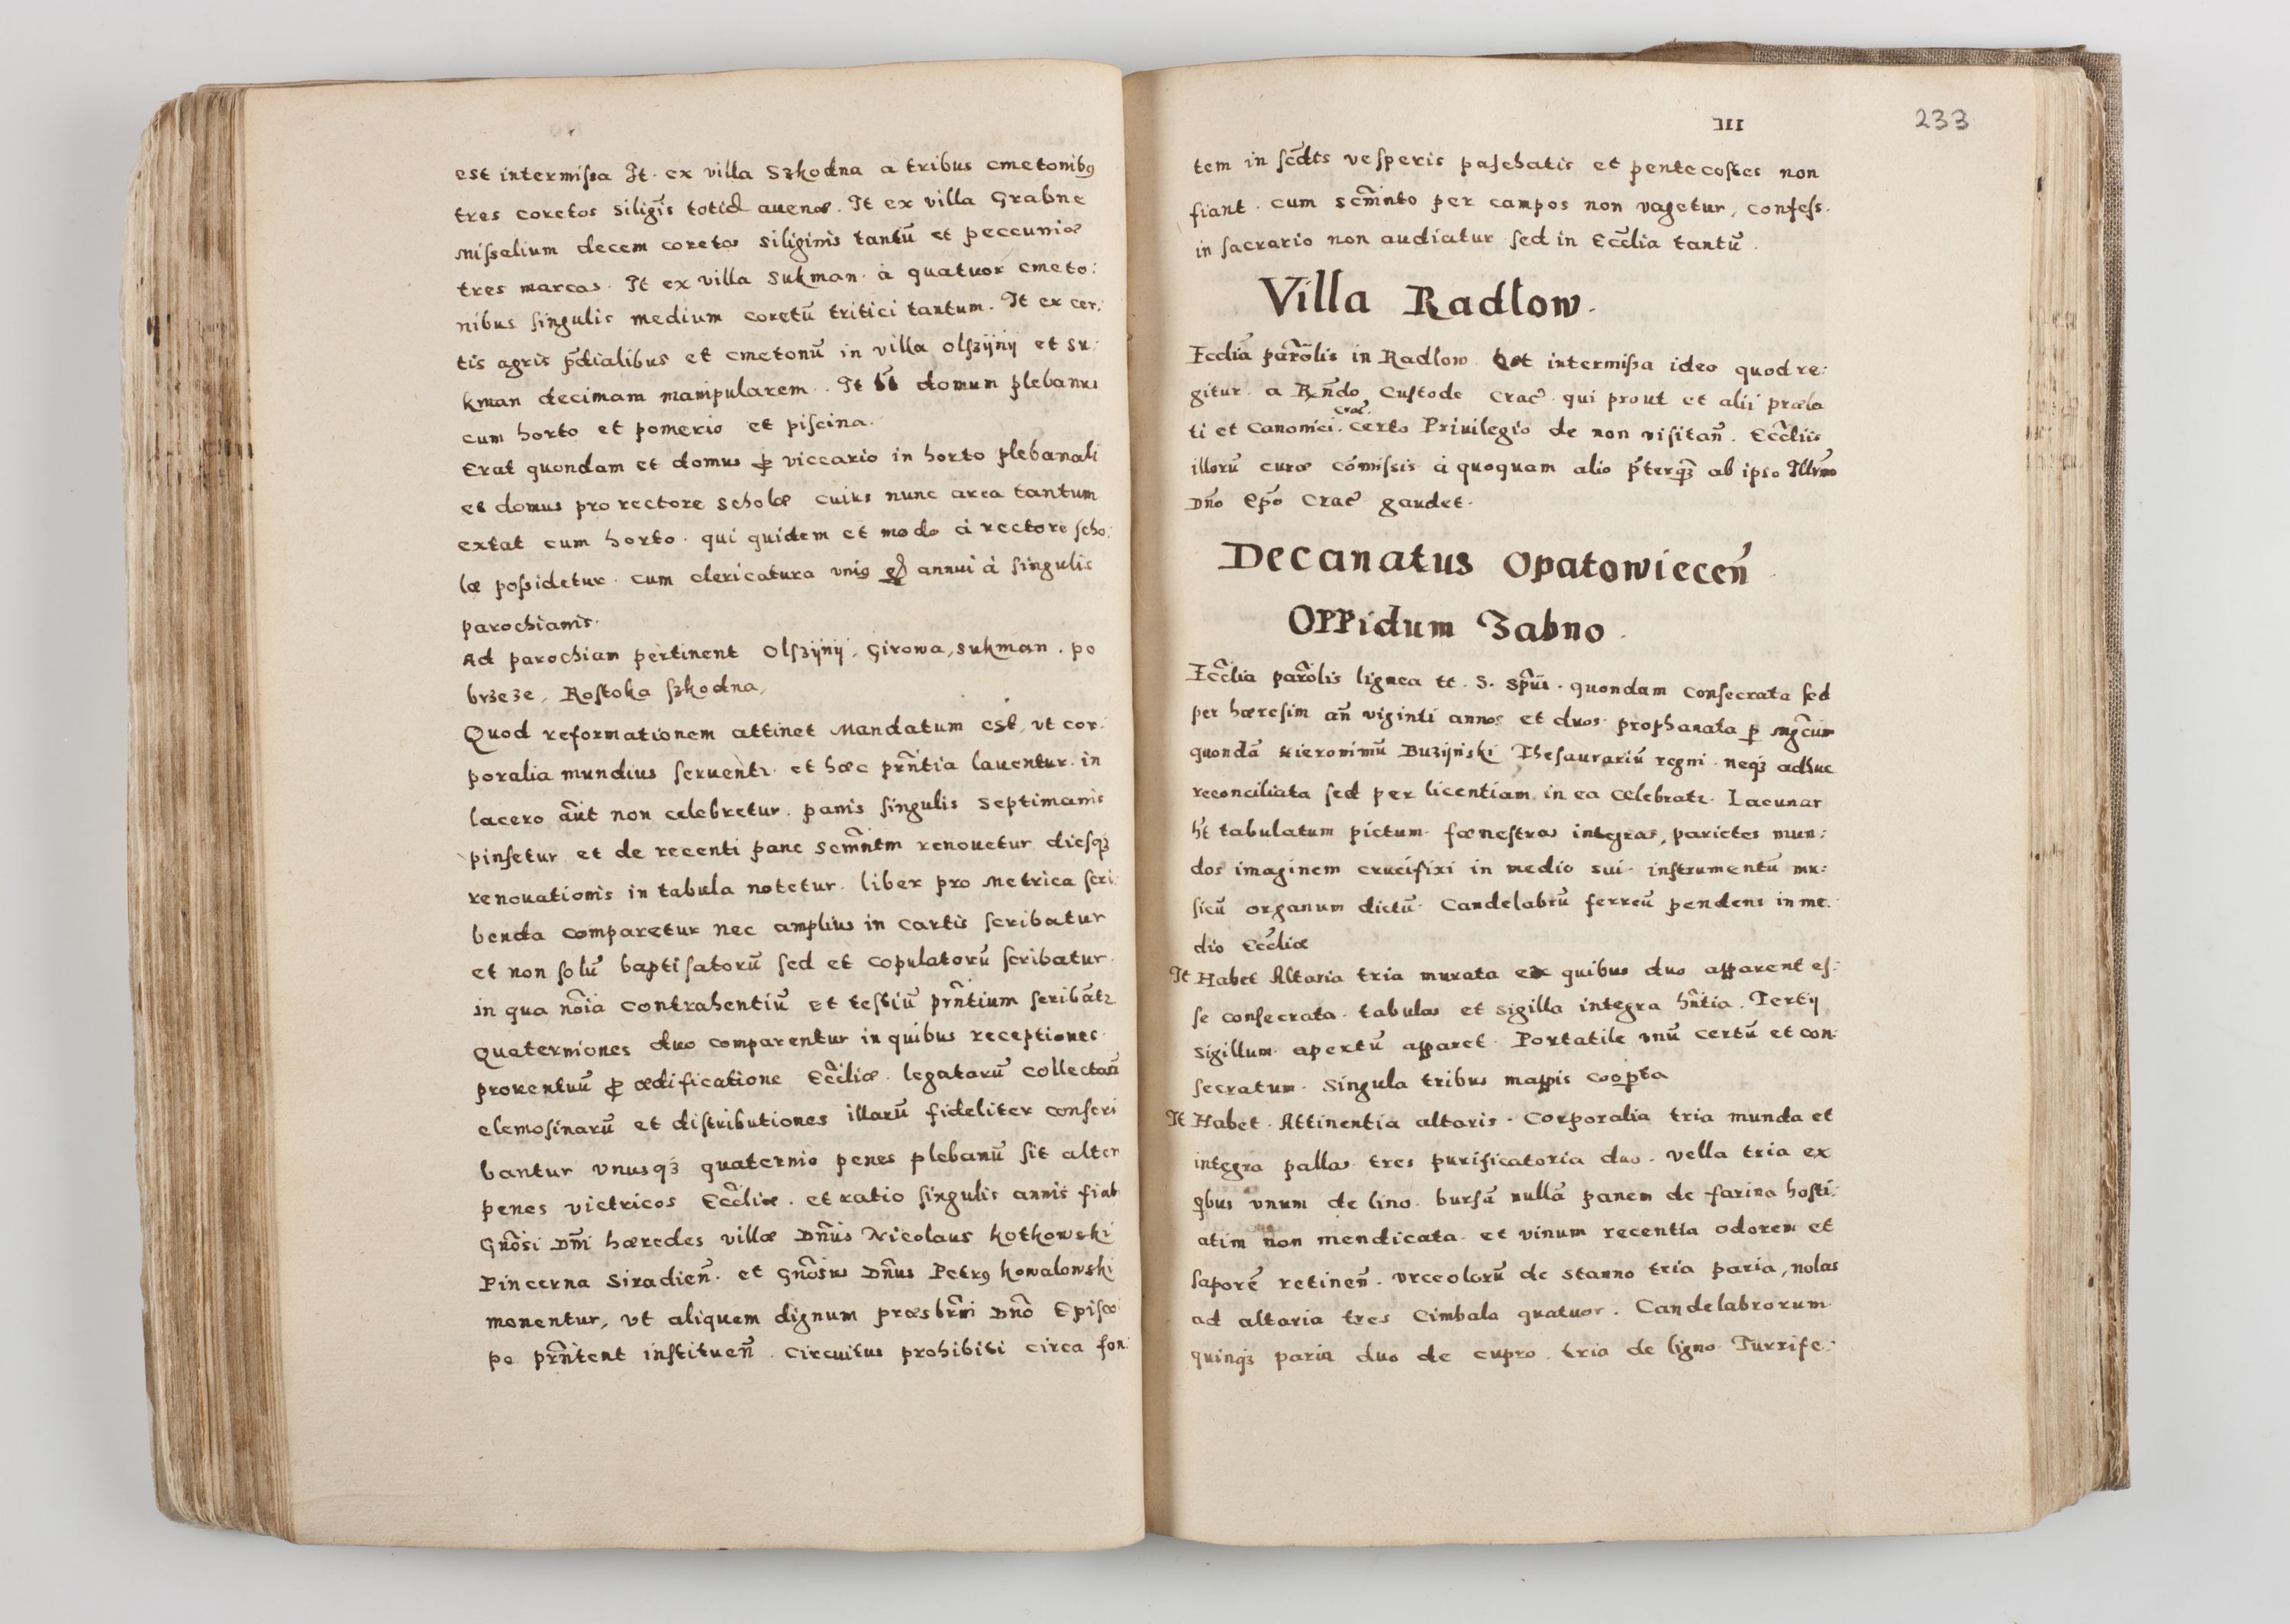 est intermiſsa It. ex villa Szkodna a tribus cmetonibꝯ
tres coretos Siliḡis totid auenæ. It ex villa Grabne
Miſsalium decem coretos siliginis tantū et peccuniæ
tres marcas. It ex villa Sukman. à quatuor cmeto:
nibus ſingulis medium coretū tritici tantum. It ex cer:
tis agris p̄dialibus et cmetonū in villa Olſzÿnÿ et Su:
kman decimam manipularem. It domun plebanus
cum horto et pomerio et piſcina.
Erat quondam et domus ꝓ viccario in horto plebanali
et domus pro rectore scholæ cuius nunc area tantum
extat cum horto. qui quidem et modo à rectore ſcho:
læ poſsidetur. cum clericatura vniꝯ annui à ſingulis
parochianis.
Ad parochian pertinent Olſzÿnÿ, Girowa, sukman. po
brzeze, Roſtoka ſzkodna,
Quod reformationem attinet Mandatum est, vt cor:
poralia mundius ſeruentr. et hæc prn̄tia lauentur. in
lacero aūt non celebretur. panis ſingulis Septimanis
pinſetur et de recenti pane Scm̄ntm renouetur dieſqꝫ
renouationis in tabula notetur. liber pro Metrica ſcri:
benda comparetur nec amplius in cartis ſcribatur
et non ſolū baptiſatorū ſed et copulatorū ſcribatur.
in qua nōia contrahentiū et teſtiū prn̄tium ſcribātr
Quaterniones duo comparentur in quibus receptiones.
prouentuū ꝓ ædificatione Ecc̄liæ. legatorū collectarū
elemoſinarū et diſtributiones illarū fideliter conſcri
bantur vnusqꝫ quaternio penes plebanū ſit alter
penes victricos Ecc̄liæ. et ratio ſingulis annis fiat
Gnōsi Dn̄i hæredes villæ Dn̄us Nicolaus Kotkowski
Pincerna Siradien̄. et Gnōsus Dn̄us Petrꝯ Kowalowski
monentur, vt aliquem dignum præsbr̄m Dn̄o Epiſco
po prn̄tent inſtituen̄. Circuitus prohibiti circa fon:
III
233
tem in ſcd̄ts veſperis paſchatis et pentecoſtes non
fiant. cum Scm̄nto per campos non vagetur, confeſs.
in ſacrario non audiatur ſed in Ecc̄lia tantū.
Villa Radlow.
Ecclia parōlis in Radlow. Est intermiſsa ideo quod re:
gitur. a Rn̄do Cuſtode Crac̄. qui prout et alii præla
Crac̄.
ti et Canonici. certo Priuilegio de non viſitan̄. Ecc̄liis
illorū curæ cōmiſsis à quoquam alio p̄terqꝫ ab ipso Illr̄mo
Dn̄o Ep̄o Crac̄ gaudet.
Decanatus Opatowiecen̄
Oppidum Zabno.
Ecc̄lia parōlis lignea tt. S. Spūs. quondam conſecrata ſed
per hæreſim an̄ viginti annos et duos prophanata ꝑ
quondā Hieronimū Buzÿnski Theſaurariū regni. neqꝫ adhuc
reconciliata ſed per licentiam in ea celebratr. Lacunar
ht̄ tabulatum pictum. fæneſtras integras, parietes mun:
dos imaginem crucifixi in medio sui. inſtrumentū mu:
ſicū organum dictū. Candelabrū ferreū pendens in me:
dio Ecc̄liæ
It Habet Altaria tria murata ex quibus duo apparent eſ:
ſe conſecrata. tabulas et sigilla integra hn̄tia. Tertÿ
Sigillum apertū apparet. Portatile vnū certū et con:
ſecratum. Singula tribus mappis coop̱ta
It Habet. Attinentia altaris. Corporalia tria munda et
integra pallas tres purificatoria duo. vella tria ex
qbus vnum de lino. burſā nullā panem de farina hoſti:
atim non mendicata. et vinum recentia odorem et
ſaporē retinen̄. vrceolorū de Stanno tria paria, nolas
ad altaria tres Cimbala quatuor. Candelabrorum
quinqꝫ paria duo de cupro. tria de ligno. Turrife: